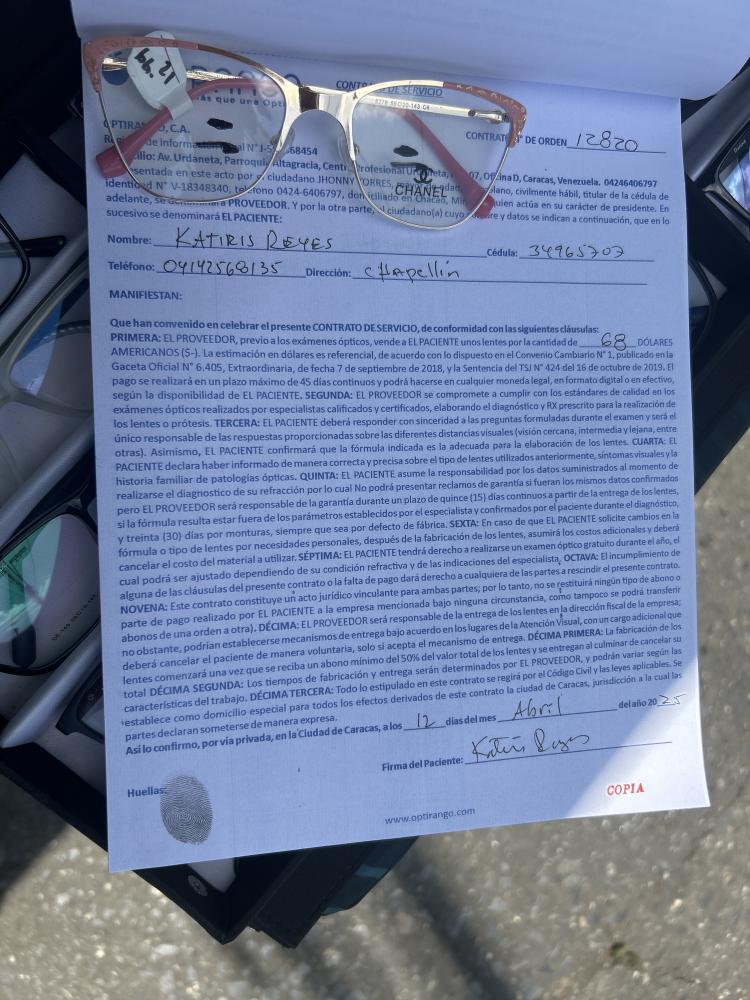 CONTRATO DE SERVICIO
más que una Opti
OPTIRANGO, C.A. CONTRATO N° DE ORDEN 12820
Registro de Información Fiscal N° J-5 68454
Domicilio: Av. Urdaneta, Parroquia Altagracia, Centro Profesional Urdaneta, 07, Oficina D, Caracas, Venezuela. 04246406797
representada en este acto por el ciudadano JHONNY TORRES, mayor de edad, venezolano, civilmente hábil, titular de la cédula de
identidad N° V-18348340, teléfono 0424-6406797, domiciliado en Chacao, quien actúa en su carácter de presidente. En
adelante, se denominará PROVEEDOR. Y por la otra parte, el ciudadano(a) cuyo nombre y datos se indican a continuación, que en lo
sucesivo se denominará EL PACIENTE:
12.99
8278 55□20-143 C4
CHANEL
Nombre: KATIRIS REYES Cédula: 34965707
Teléfono: 04142568135 Dirección: CHApellín
MANIFIESTAN:
Que han convenido en celebrar el presente CONTRATO DE SERVICIO, de conformidad con las siguientes cláusulas:
PRIMERA: EL PROVEEDOR, previo a los exámenes ópticos, vende a EL PACIENTE unos lentes por la cantidad de 68 DÓLARES
AMERICANOS (S-). La estimación en dólares es referencial, de acuerdo con lo dispuesto en el Convenio Cambiario N° 1, publicado en la
Gaceta Oficial N° 6.405, Extraordinaria, de fecha 7 de septiembre de 2018, y la Sentencia del TSJ N° 424 del 16 de octubre de 2019. El
pago se realizará en un plazo máximo de 45 días continuos y podrá hacerse en cualquier moneda legal, en formato digital o en efectivo,
según la disponibilidad de EL PACIENTE. SEGUNDA: EL PROVEEDOR se compromete a cumplir con los estándares de calidad en los
exámenes ópticos realizados por especialistas calificados y certificados, elaborando el diagnóstico y RX prescrito para la realización de
los lentes o prótesis. TERCERA: EL PACIENTE deberá responder con sinceridad a las preguntas formuladas durante el examen y será el
único responsable de las respuestas proporcionadas sobre las diferentes distancias visuales (visión cercana, intermedia y lejana, entre
otras). Asimismo, EL PACIENTE confirmará que la fórmula indicada es la adecuada para la elaboración de los lentes. CUARTA: EL
PACIENTE declara haber informado de manera correcta y precisa sobre el tipo de lentes utilizados anteriormente, síntomas visuales y la
historia familiar de patologías ópticas. QUINTA: EL PACIENTE asume la responsabilidad por los datos suministrados al momento de
realizarse el diagnostico de su refracción por lo cual No podrá presentar reclamos de garantía si fueran los mismos datos confirmados
pero EL PROVEEDOR será responsable de la garantía durante un plazo de quince (15) días continuos a partir de la entrega de los lentes,
si la fórmula resulta estar fuera de los parámetros establecidos por el especialista y confirmados por el paciente durante el diagnóstico,
y treinta (30) días por monturas, siempre que sea por defecto de fábrica. SEXTA: En caso de que EL PACIENTE solicite cambios en la
fórmula o tipo de lentes por necesidades personales, después de la fabricación de los lentes, asumirá los costos adicionales y deberá
cancelar el costo del material a utilizar. SÉPTIMA: EL PACIENTE tendrá derecho a realizarse un examen óptico gratuito durante el año, el
cual podrá ser ajustado dependiendo de su condición refractiva y de las indicaciones del especialista. OCTAVA: El incumplimiento de
alguna de las cláusulas del presente contrato o la falta de pago dará derecho a cualquiera de las partes a rescindir el presente contrato.
NOVENA: Este contrato constituye un acto jurídico vinculante para ambas partes; por lo tanto, no se restituirá ningún tipo de abono o
parte de pago realizado por EL PACIENTE a la empresa mencionada bajo ninguna circunstancia, como tampoco se podrá transferir
abonos de una orden a otra). DÉCIMA: EL PROVEEDOR será responsable de la entrega de los lentes en la dirección fiscal de la empresa;
no obstante, podrían establecerse mecanismos de entrega bajo acuerdo en los lugares de la Atención Visual, con un cargo adicional que
deberá cancelar el paciente de manera voluntaria, solo si acepta el mecanismo de entrega. DÉCIMA PRIMERA: La fabricación de los
lentes comenzará una vez que se reciba un abono mínimo del 50% del valor total de los lentes y se entregan al culminar de cancelar su
total DÉCIMA SEGUNDA: Los tiempos de fabricación y entrega serán determinados por EL PROVEEDOR, y podrán variar según las
características del trabajo. DÉCIMA TERCERA: Todo lo estipulado en este contrato se regirá por el Código Civil y las leyes aplicables. Se
establece como domicilio especial para todos los efectos derivados de este contrato la ciudad de Caracas, jurisdicción a la cual las
partes declaran someterse de manera expresa.
Así lo confirmo, por vía privada, en la Ciudad de Caracas, a los 12 días del mes Abril del año 2025
Firma del Paciente: Katiris Reyes
Huellas:
COPIA
www.optirango.com